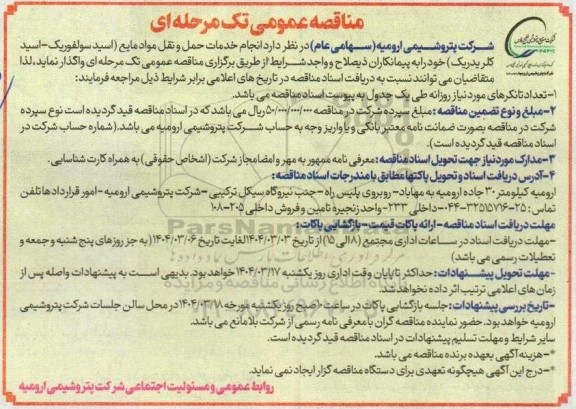 مناقصه عمومی تک مرحله ای
شرکت پتروشیمی ارومیه (سهامی عام) در نظر دارد انجام خدمات حمل و نقل مواد مایع (اسید سولفوریک-اسید
کلریدریک) خود را به پیمانکاران ذیصلاح و واجد شرایط از طریق برگزاری مناقصه عمومی تک مرحله ای واگذار نماید، لذا
متقاضیان می توانند نسبت به دریافت اسناد مناقصه در تاریخ های اعلامی برابر شرایط ذیل مراجعه فرمایند:
۱-تعداد تانکرهای مورد نیاز روزانه طی یک جدول به پیوست اسناد مناقصه می باشد.
۲-مبلغ و نوع تضمین مناقصه: مبلغ سپرده شرکت در مناقصه ۵۰/۰۰۰/۰۰۰/۰۰۰ ریال می باشد که در اسناد مناقصه قید گردیده است نوع سپرده
شرکت در مناقصه بصورت ضمانت نامه معتبر بانکی و یا واریز وجه به حساب شرکت پتروشیمی ارومیه می باشد. (شماره حساب شرکت در
اسناد مناقصه قید گردیده است).
۳-مدارک مورد نیاز جهت تحویل اسناد مناقصه: معرفی نامه ممهور به مهر و امضا مجاز شرکت (اشخاص حقوقی) به همراه کارت شناسایی.
۴-آدرس دریافت اسناد و تحویل پاکتها مطابق با مندرجات اسناد مناقصه:
ارومیه کیلومتر ۳۰ جاده ارومیه به مهاباد- روبروی پلیس راه - جنب نیروگاه سیکل ترکیبی - شرکت پتروشیمی ارومیه - امور قراردادها تلفن
تماس: ۲۵-۳۲۵۱۵۷۱۶-۰۴۴ -داخلی ۲۳۳- واحد زنجیره تامین و فروش داخلی ۲۰۵-۱۰۸
مهلت دریافت اسناد مناقصه - ارائه پاکات قیمت - بازگشایی پاکات:
-مهلت دریافت اسناد در ساعات اداری مجتمع (۸ الی ۱۵) از تاریخ ۱۴۰۴/۰۳/۰۳ لغایت تاریخ ۱۴۰۴/۰۳/۰۶ (به جز روزهای پنج شنبه و جمعه و
تعطیلات رسمی می باشد)
-مهلت تحویل پیشنهادات: حداکثر تا پایان وقت اداری روز یکشنبه ۱۴۰۴/۰۳/۱۷ خواهد بود. بدیهی است به پیشنهادات واصله پس از
زمان های اعلامی ترتیب اثر داده نخواهد شد.
-تاریخ بررسی پیشنهادات: جلسه بازگشایی پاکات در ساعت ۱۰ صبح روز یکشنبه مورخه ۱۴۰۴/۰۳/۱۸ در محل سالن جلسات شرکت پتروشیمی
ارومیه خواهد بود. حضور نماینده مناقصه گران با معرفی نامه رسمی از شرکت بلامانع می باشد.
سایر شرایط و مهلت تسلیم پیشنهادات در اسناد مناقصه قید گردیده است.
*-هزینه آگهی بعهده برنده مناقصه می باشد.
*-درج این آگهی هیچگونه تعهدی برای دستگاه مناقصه گزار ایجاد نمی نماید.
روابط عمومی و مسئولیت اجتماعی شرکت پتروشیمی ارومیه